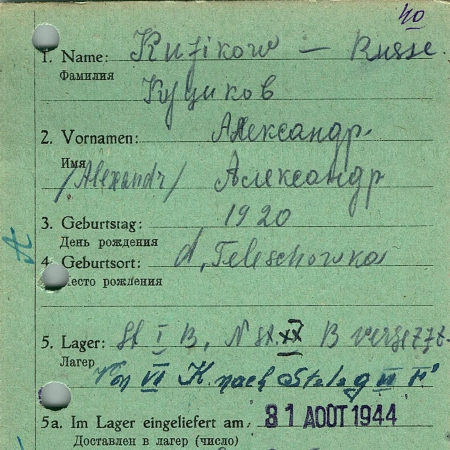 40
1. Name: Kuzikow — Russe.
Фамилия
Кузиков
2. Vornamen: Александр.
Имя
/Alexandr/ Александр
3. Geburtstag: 1920
День рождения
4. Geburtsort: d, Teleschowka
Место рождения
5. Lager: St I B, N St. XX B versetzt.
Лагер
Von VI K. nach Stalag VI F
5a. Im Lager eingeliefert am 31 AOÛT 1944
Доставлен в лагер (число)